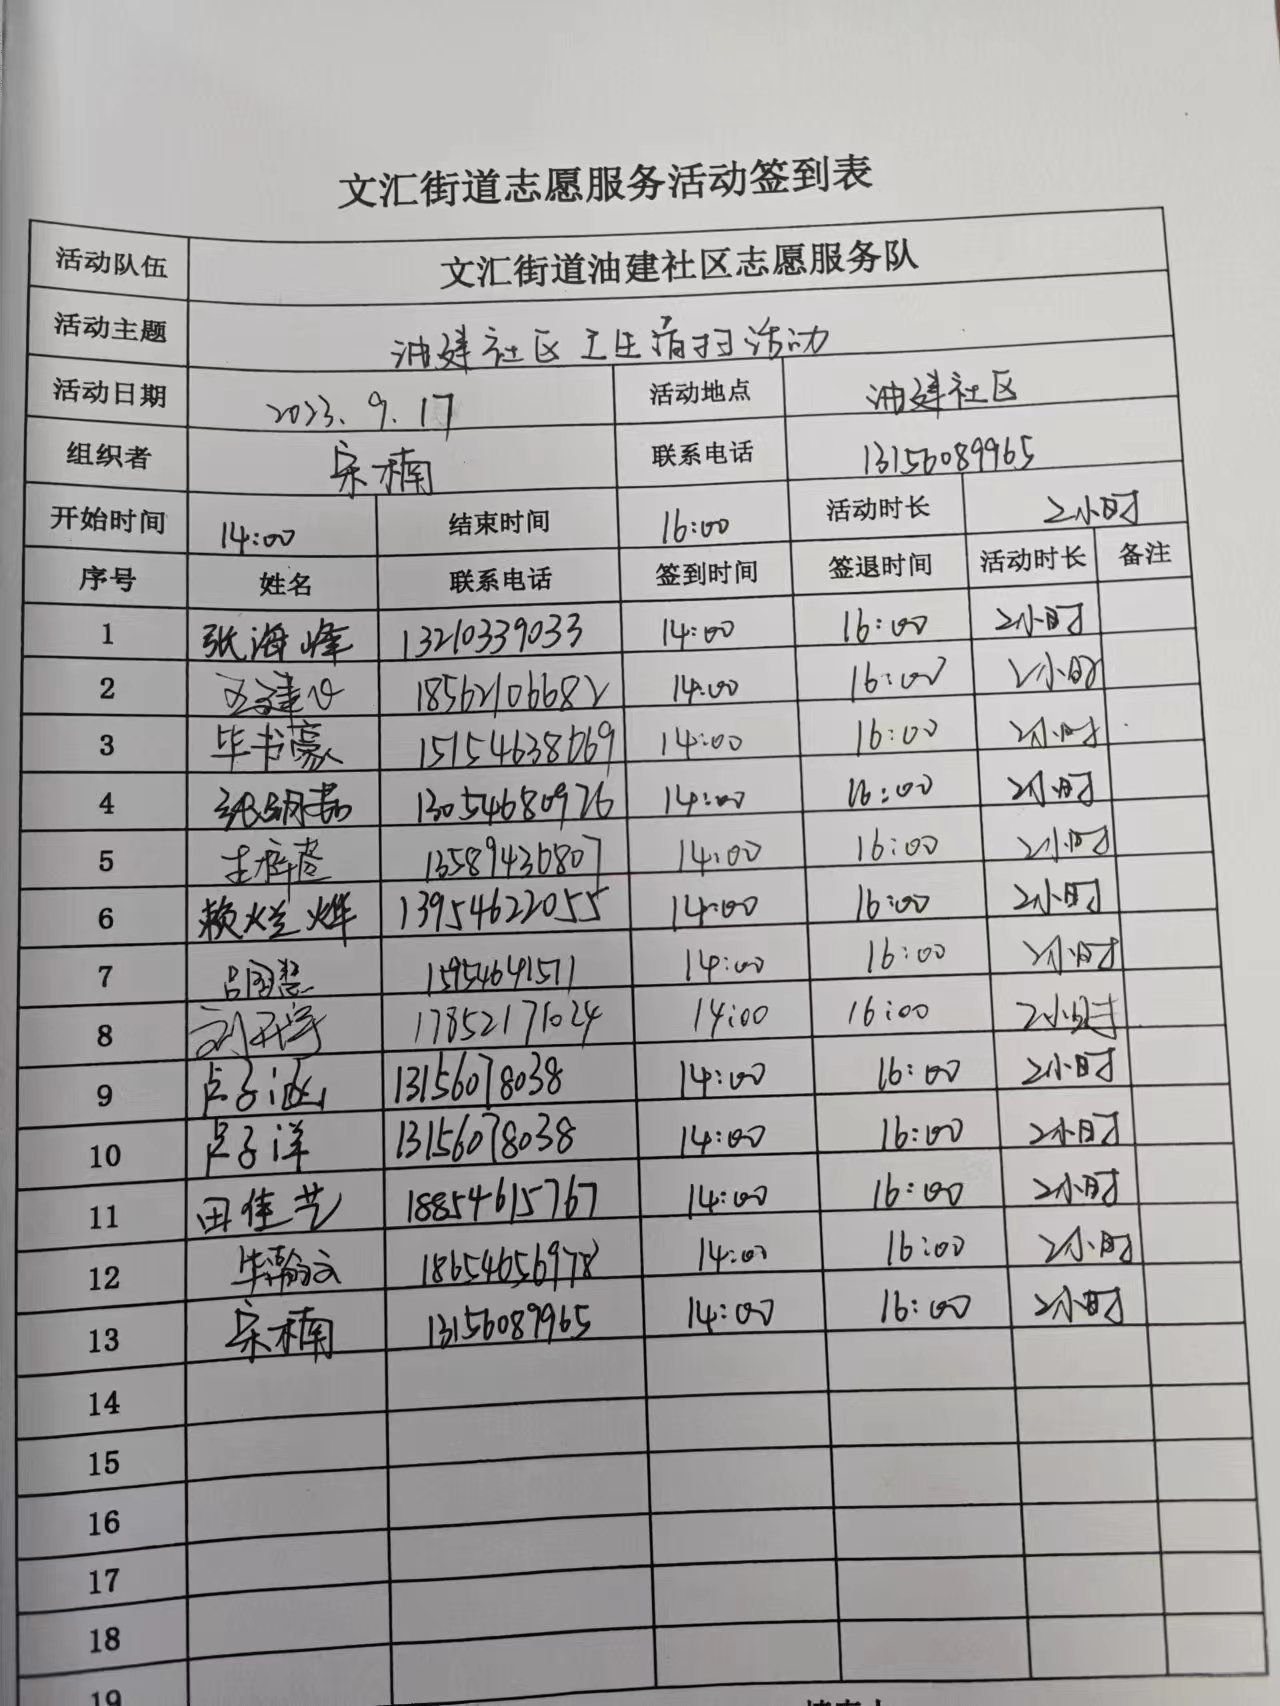 文汇街道志愿服务活动签到表
活动队伍 文汇街道油建社区志愿服务队
活动主题 油建社区卫生清扫活动
活动日期 2023.9.17 活动地点 油建社区
组织者 宋楠 联系电话 13156089965
开始时间 14:00 结束时间 16:00 活动时长 2小时
序号 姓名 联系电话 签到时间 签退时间 活动时长 备注
1 张海峰 13210339033 14:00 16:00 2小时
2 18562106682 14:00 16:00 2小时
3 毕书豪 15154638669 14:00 16:00 2小时
4 13054680926 14:00 16:00 2小时
5 13589436807 14:00 16:00 2小时
6 13954622055 14:00 16:00 2小时
7 15954641571 14:00 16:00 2小时
8 17852171024 14:00 16:00 2小时
9 卢子涵 13156078038 14:00 16:00 2小时
10 卢子洋 13156078038 14:00 16:00 2小时
11 田佳艺 18854615767 14:00 16:00 2小时
12 毕瀚文 18654656978 14:00 16:00 2小时
13 宋楠 13156089965 14:00 16:00 2小时
14
15
16
17
18
19